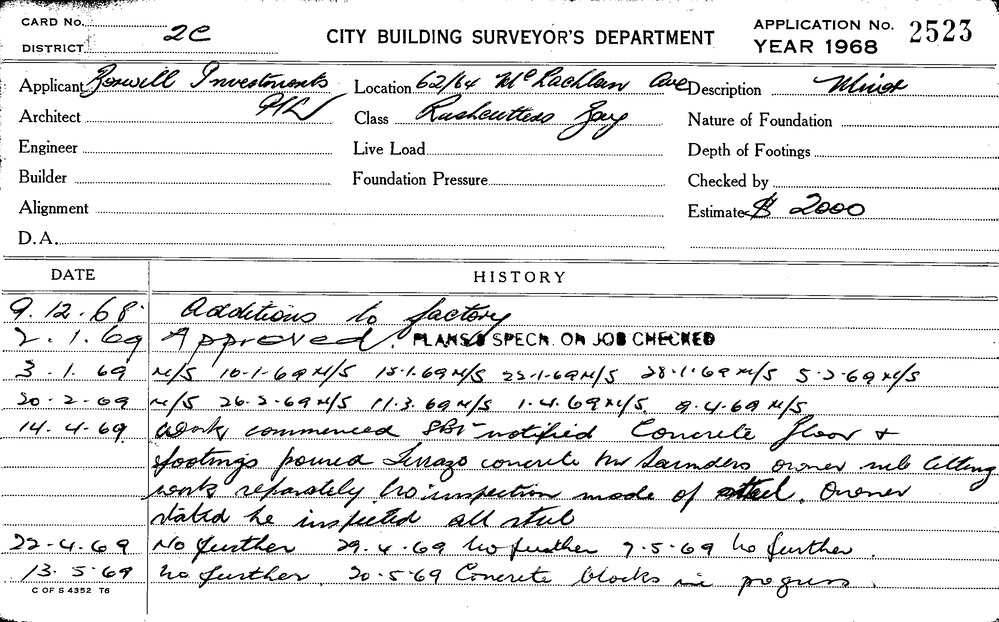 CARD No.
DISTRICT 2C
CITY BUILDING SURVEYOR'S DEPARTMENT
APPLICATION No. 2523
YEAR 1968
Applicant Investments P/L
Location 62/64 McLachlan Ave
Description Minor
Architect
Class Rushcutters Bay
Nature of Foundation
Engineer
Live Load
Depth of Footings
Builder
Foundation Pressure
Checked by
Alignment
Estimate $ 2000
D.A.
DATE HISTORY
9.12.68 Additions to factory
2.1.69 Approved. PLANS & SPECN. ON JOB CHECKED
3.1.69 N/S 10-1-69 N/S 15.1.69 N/S 22-1-69 N/S 28.1.69 N/S 5-2-69 N/S
20-2-69 N/S 26-2-69 N/S 11.3.69 N/S 1.4.69 N/S 9.4.69 N/S
14.4.69 Work commenced notified Concrete floor +
footings poured concrete Mr Saunders owner letting
work separately. No inspection made of steel. Owner
stated he inspected all steel
22-4-69 No further 29.4.69 No further 7-5-69 No further.
13.5.69 No further. 20-5-69 Concrete blocks in progress.
C OF S 4352 T6